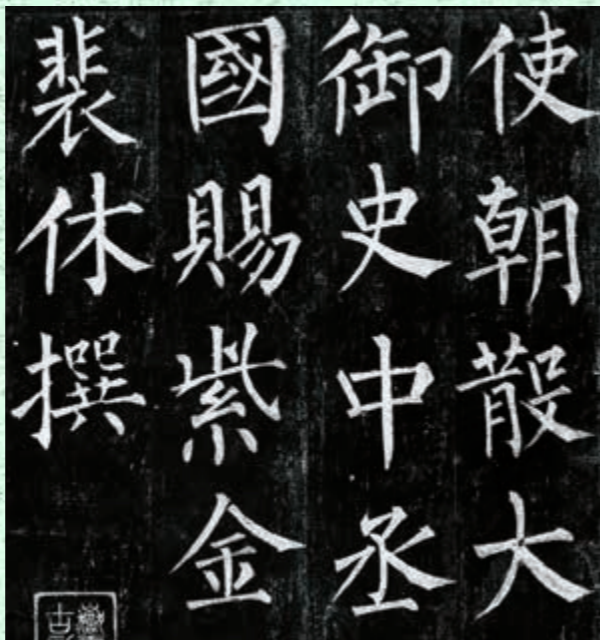 使朝散大
御史中丞
國賜紫金
裴休撰